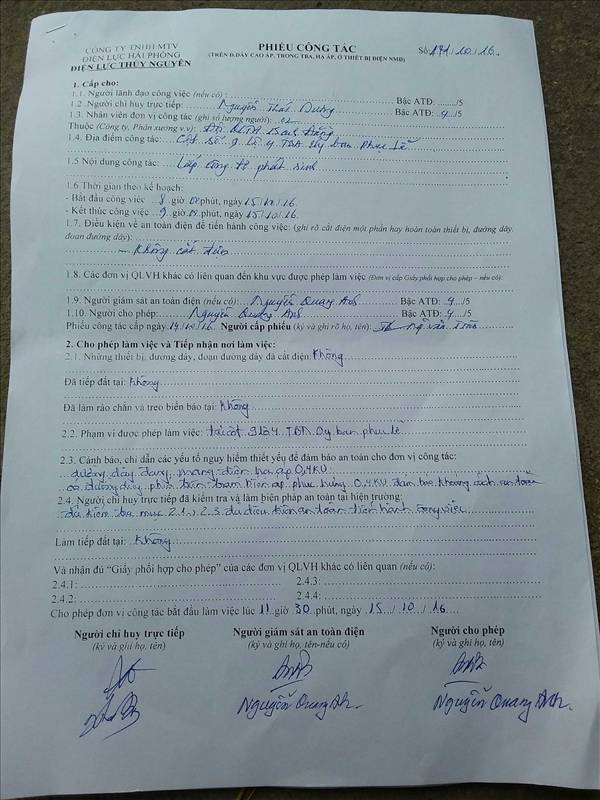 CÔNG TY TNHH MTV
ĐIỆN LỰC HẢI PHÒNG
ĐIỆN LỰC THỦY NGUYÊN
PHIẾU CÔNG TÁC
(TRÊN Đ.DÂY CAO ÁP, TRONG TBA, HẠ ÁP, Ở THIẾT BỊ ĐIỆN NMĐ)
Số: /10/16.
1. Cấp cho:
1.1. Người lãnh đạo công việc (nếu có) : Bậc ATĐ: ......../5
1.2 .Người chỉ huy trực tiếp: Nguyễn Thái Dương Bậc ATĐ: /5
1.3. Nhân viên đơn vị công tác (ghi số lượng người): 02 4/5
Thuộc (Công ty, Phân xưởng v.v): Đội QLTH
1.4. Địa điểm công tác: Cột số 9 lộ 4 TBA Uỷ ban Phục Lễ
1.5 Nội dung công tác: Lắp công tơ phát sinh
1.6 Thời gian theo kế hoạch:
- Bắt đầu công việc 8 giờ phút, ngày 15/10/16
- Kết thúc công việc giờ phút, ngày 15/10/16.
1.7. Điều kiện về an toàn điện để tiến hành công việc: (ghi rõ cắt điện một phần hay hoàn toàn thiết bị, đường dây,
đoạn đường dây):
- Không cắt điện
1.8. Các đơn vị QLVH khác có liên quan đến khu vực được phép làm việc (Đơn vị cấp Giấy phối hợp cho phép – nếu có):
1.9. Người giám sát an toàn điện (nếu có): Nguyễn Quang Anh Bậc ATĐ: 4/5
1.10. Người cho phép: Nguyễn Quang Anh Bậc ATĐ: 4/5
Phiếu công tác cấp ngày 14/10/16 Người cấp phiếu (ký và ghi rõ họ, tên):
2. Cho phép làm việc và Tiếp nhận nơi làm việc:
2.1. Những thiết bị, đường dây, đoạn đường dây đã cắt điện: Không
Đã tiếp đất tại: Không
Đã làm rào chắn và treo biển báo tại: Không
2.2. Phạm vi được phép làm việc: tại cột 9 lộ 4 TBA Uỷ ban phục lễ
2.3. Cảnh báo, chỉ dẫn các yếu tố nguy hiểm thiết yếu để đảm bảo an toàn cho đơn vị công tác:
đường dây đang mang điện hạ áp 0,4KV
có đường dây phía trên 0,4KV đảm bảo khoảng cách an toàn
2.4. Người chỉ huy trực tiếp đã kiểm tra và làm biện pháp an toàn tại hiện trường:
đã kiểm tra mục 2.1 2.3 đủ điều kiện an toàn tiến hành công việc
Làm tiếp đất tại: Không
Và nhận đủ “Giấy phối hợp cho phép” của các đơn vị QLVH khác có liên quan (nếu có):
2.4.1: 2.4.3:
2.4.2: 2.4.4:
Cho phép đơn vị công tác bắt đầu làm việc lúc 11 giờ 30 phút, ngày 15/10/16
Người chỉ huy trực tiếp Người giám sát an toàn điện Người cho phép
(ký và ghi họ, tên) (ký và ghi họ, tên-nếu có) (ký và ghi họ, tên)
Nguyễn Quang Anh. Nguyễn Quang Anh.